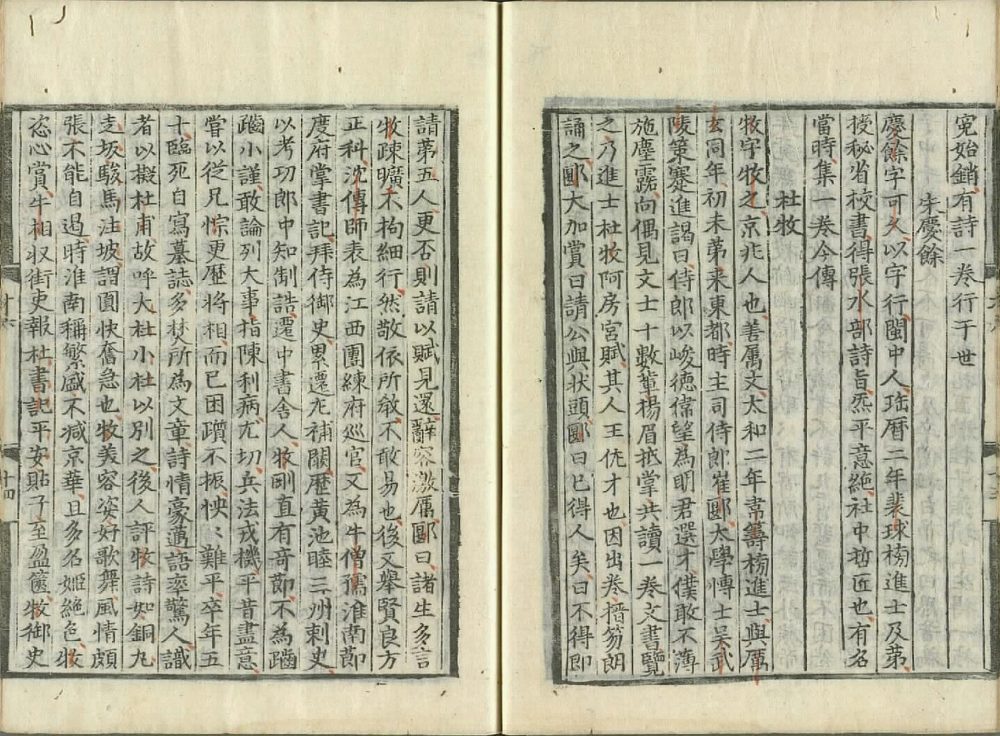 寃始銷有詩一卷行于世
朱慶餘
慶餘字可久以字行閩中人珤曆二年裴球榜進士及第
授秘省校書得張水部詩旨氣平意絶社中哲匠也有名
當時集一卷今傳
杜牧
牧字牧之京兆人也善属文太和二年韋籌榜進士與厲
玄同年初未第来東都時主司侍郎崔郾太學博士吴武
陵策蹇進謁曰侍郎以峻德偉望為明君選才僕敢不薄
施塵露向偶見文士十數輩揚眉抵掌共讀一卷文書覽
之乃進士杜牧阿房宮賦其人王佐才也因出卷搢笏朗
誦之郾大加賞曰請公與状頭郾曰已得人矣曰不得即
請苐五人更否則請以賦見還辭容激厲郾曰諸生多言
牧疎曠不拘細行然敬依所敎不敢易也後又舉賢良方
正科沈傳師表為江西團練府巡官又為牛僧孺淮南節
度府掌書記拜侍御史累遷左補闕歷黄池睦三州刺史
以考功郎中知制誥遷中書舍人牧剛直有奇節不為齪
齪小謹敢論列大事指陳利病尤切兵法戎機平昔盡意
嘗以從兄悰更歷將相而已困躓不振怏〻難平卒年五
十臨死自寫墓誌多焚所為文章詩情豪邁語率驚人識
者以擬杜甫故呼大杜小杜以別之後人評牧詩如銅丸
走坂駿馬注坡謂圓快奮急也牧美容姿好歌舞風情頗
張不能自遏時淮南稱繁盛不减京華且多名姬絶色牧
恣心賞牛相収街吏報杜書記平安貼子至盈篋牧御史
十六
十四